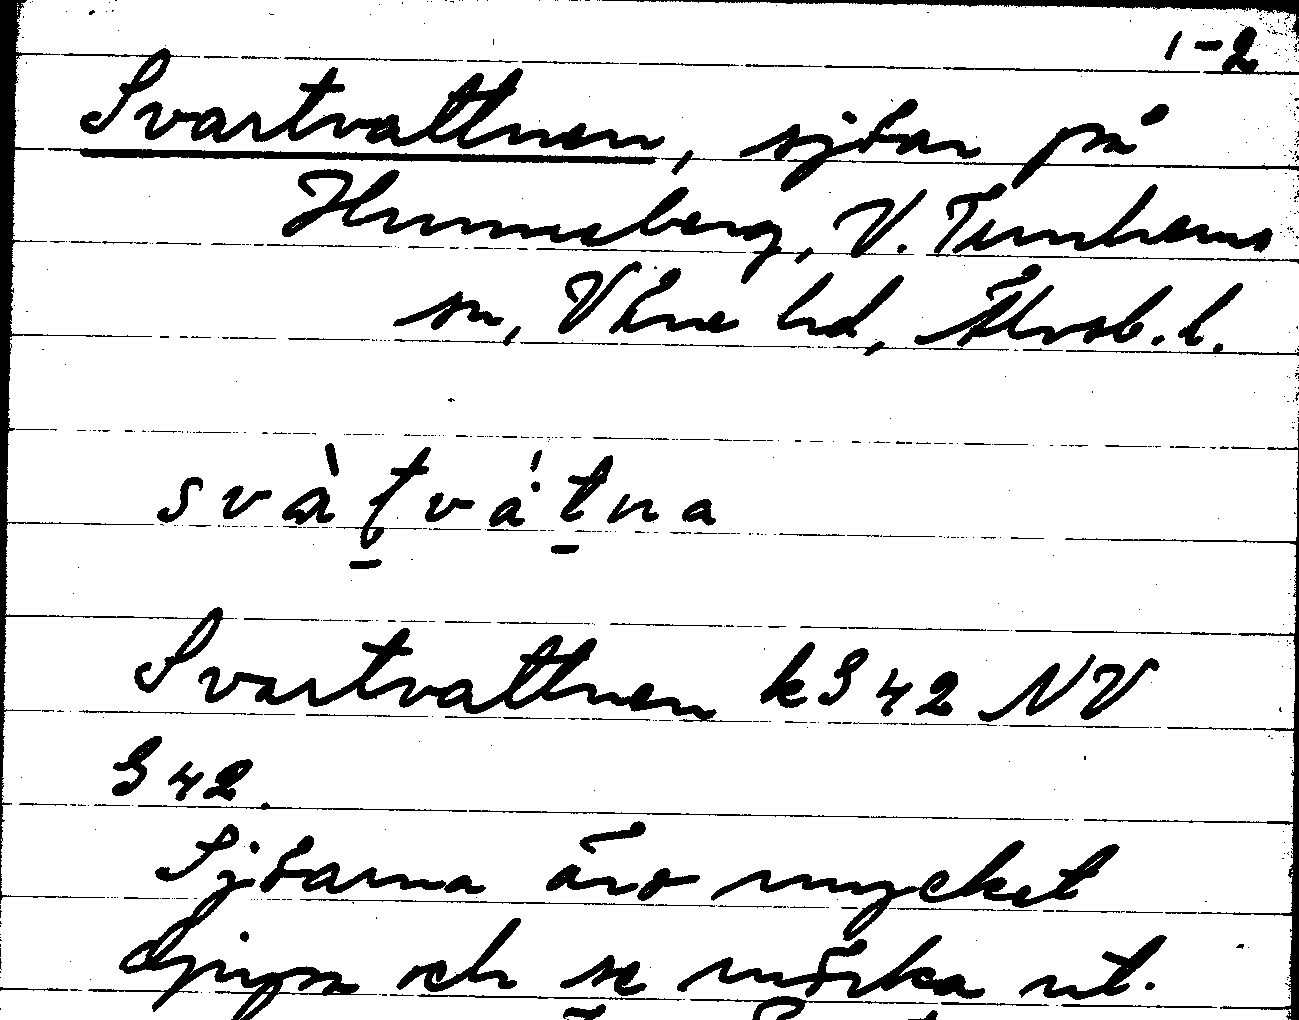 1-2
Svartvattnen, sjöar på
Hunneberg, V. Tunhems
sn, Väne hd, Älvsb. l.
svàt̠vát̠na
Svartvattnen k 9 42 NV
9 42.
Sjöarna äro mycket
djupa och se mörka ut.